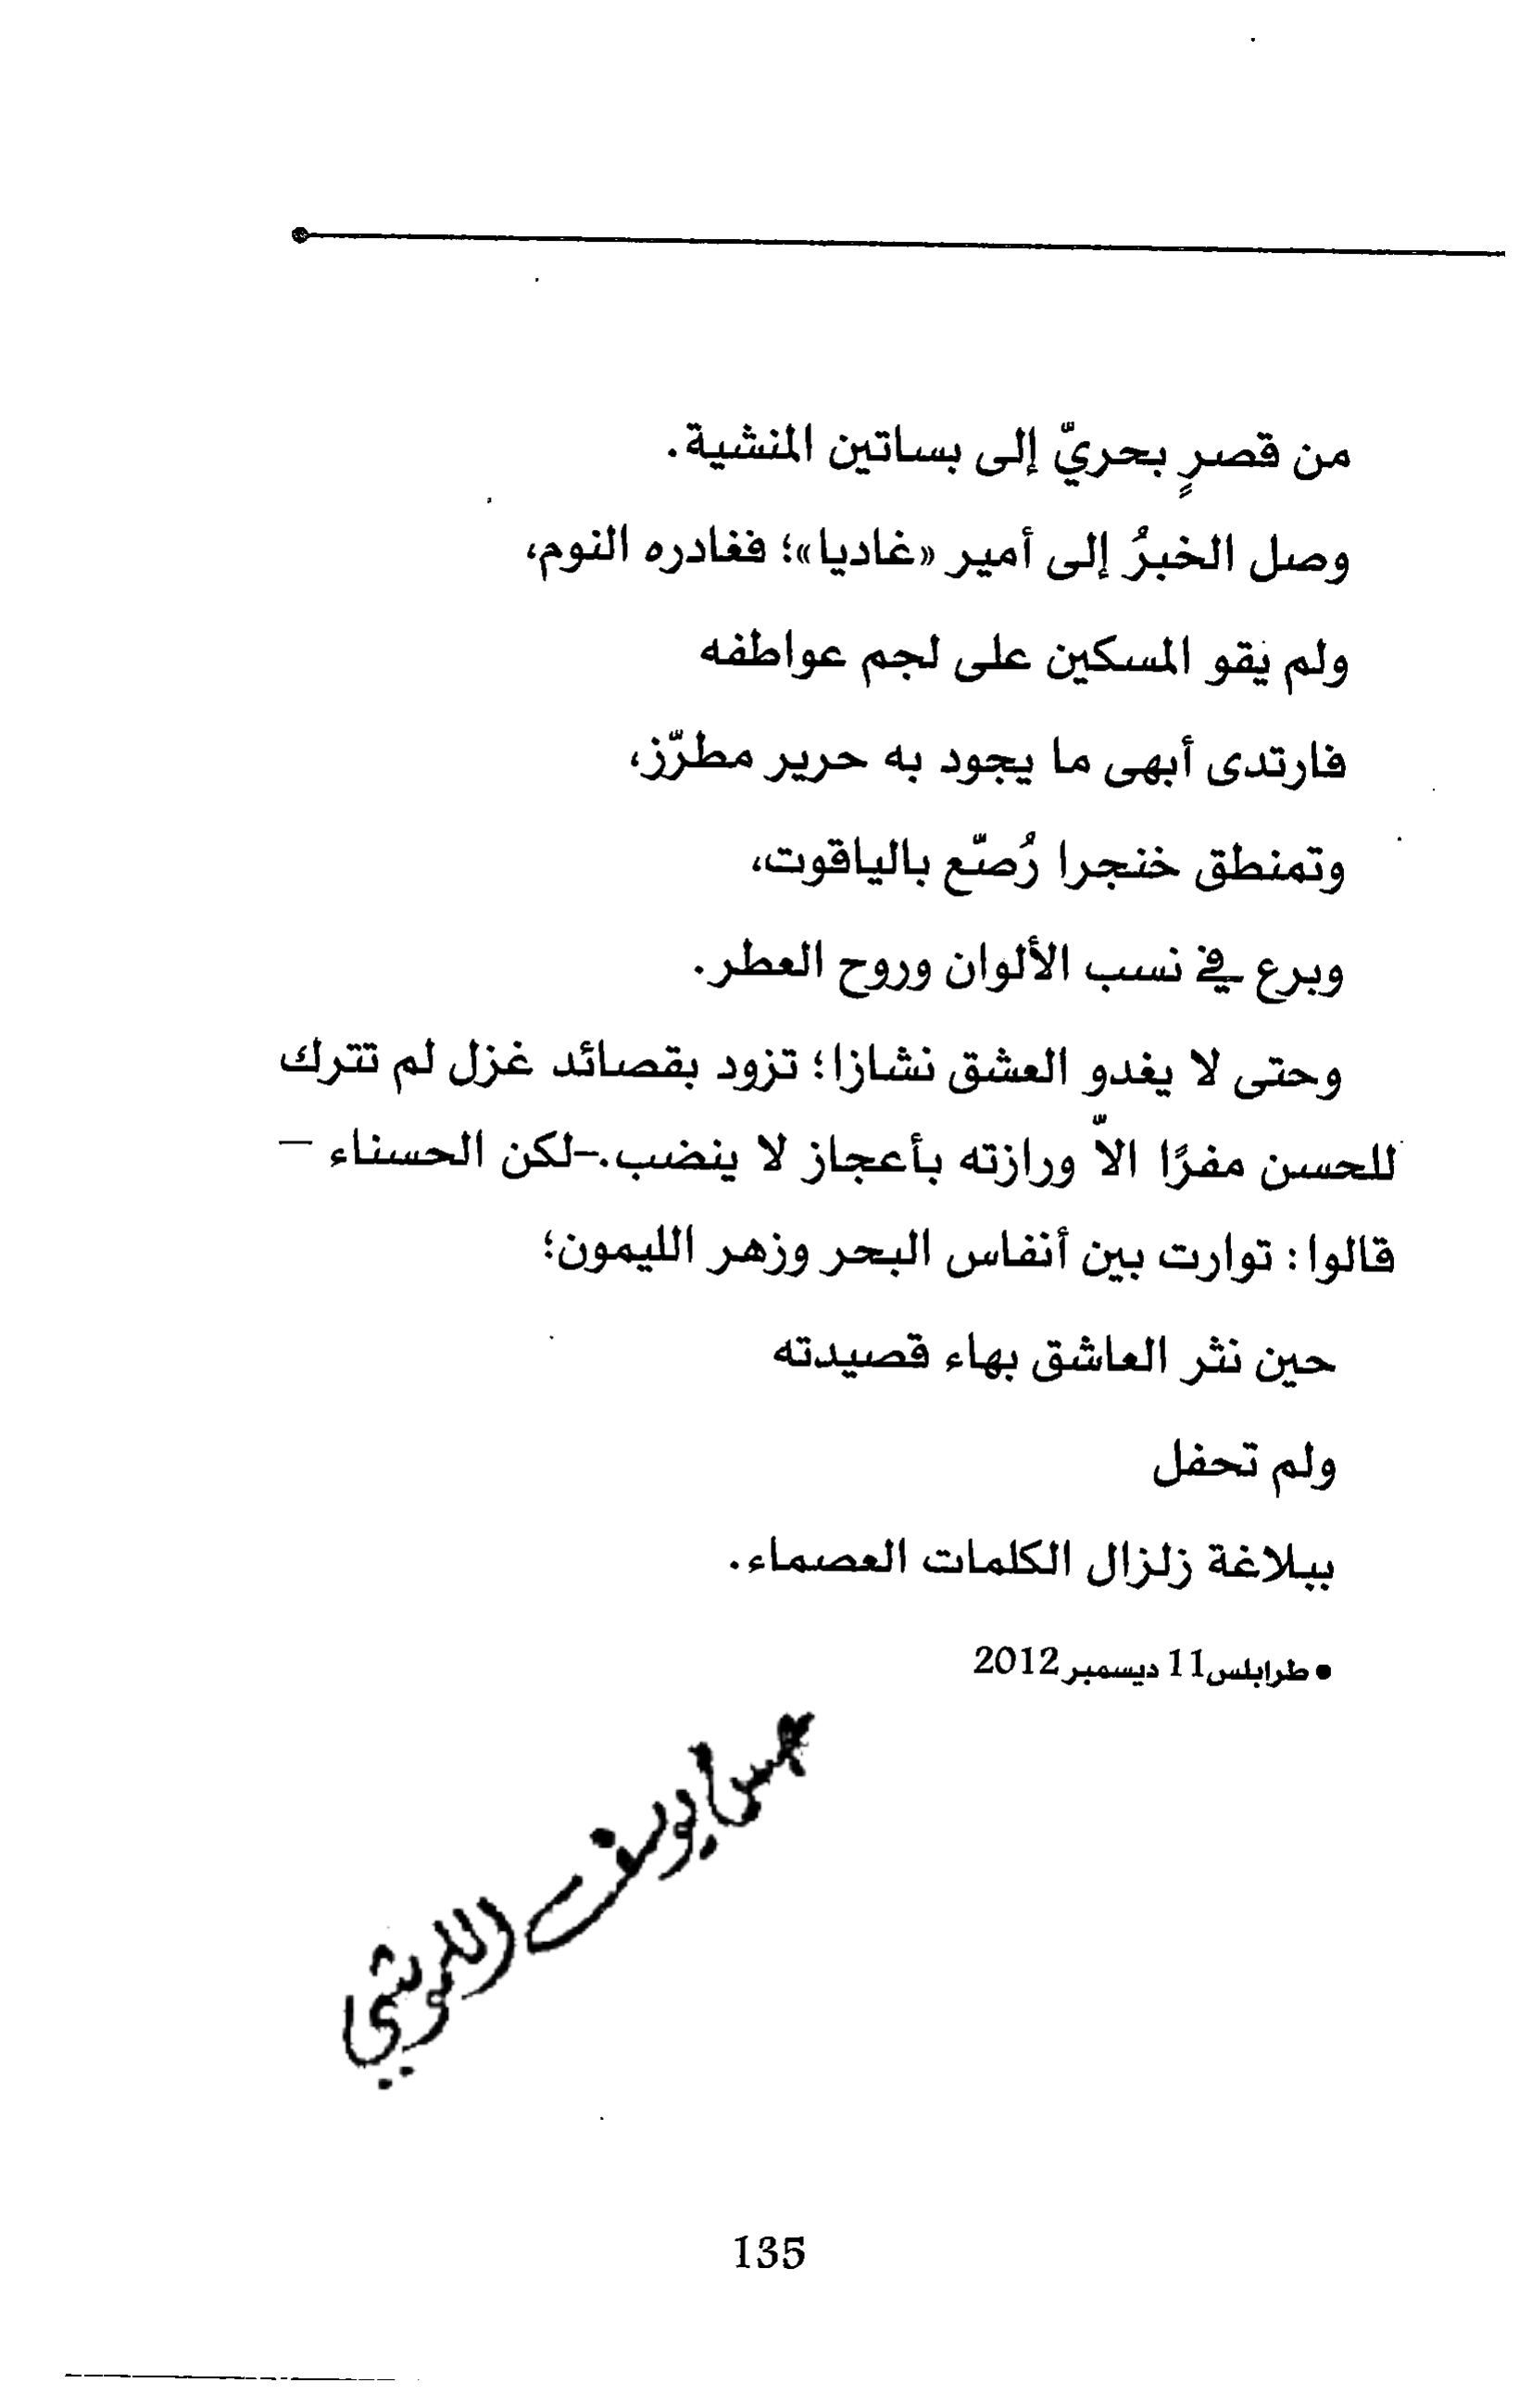 من قصرٍ بحريّ إلى بساتين المنشية.
وصل الخبرُ إلى أمير «غاديا»؛ فغادره النوم،
ولم يقو المسكين على لجم عواطفه
فارتدى أبهى ما يجود به حرير مطرّز،
وتمنطق خنجرا رُصّع بالياقوت،
وبرع في نسب الألوان وروح العطر.
وحتى لا يغدو العشق نشازا؛ تزود بقصائد غزل لم تترك
للحسن مفرًا الاّ ورازته بأعجاز لا ينضب.-لكن الحسناء –
قالوا: توارت بين أنفاس البحر وزهر الليمون؛
حين نثر العاشق بهاء قصيدته
ولم تحفل
ببلاغة زلزال الكلمات العصماء.
• طرابلس11 ديسمبر2012
يوسف
135